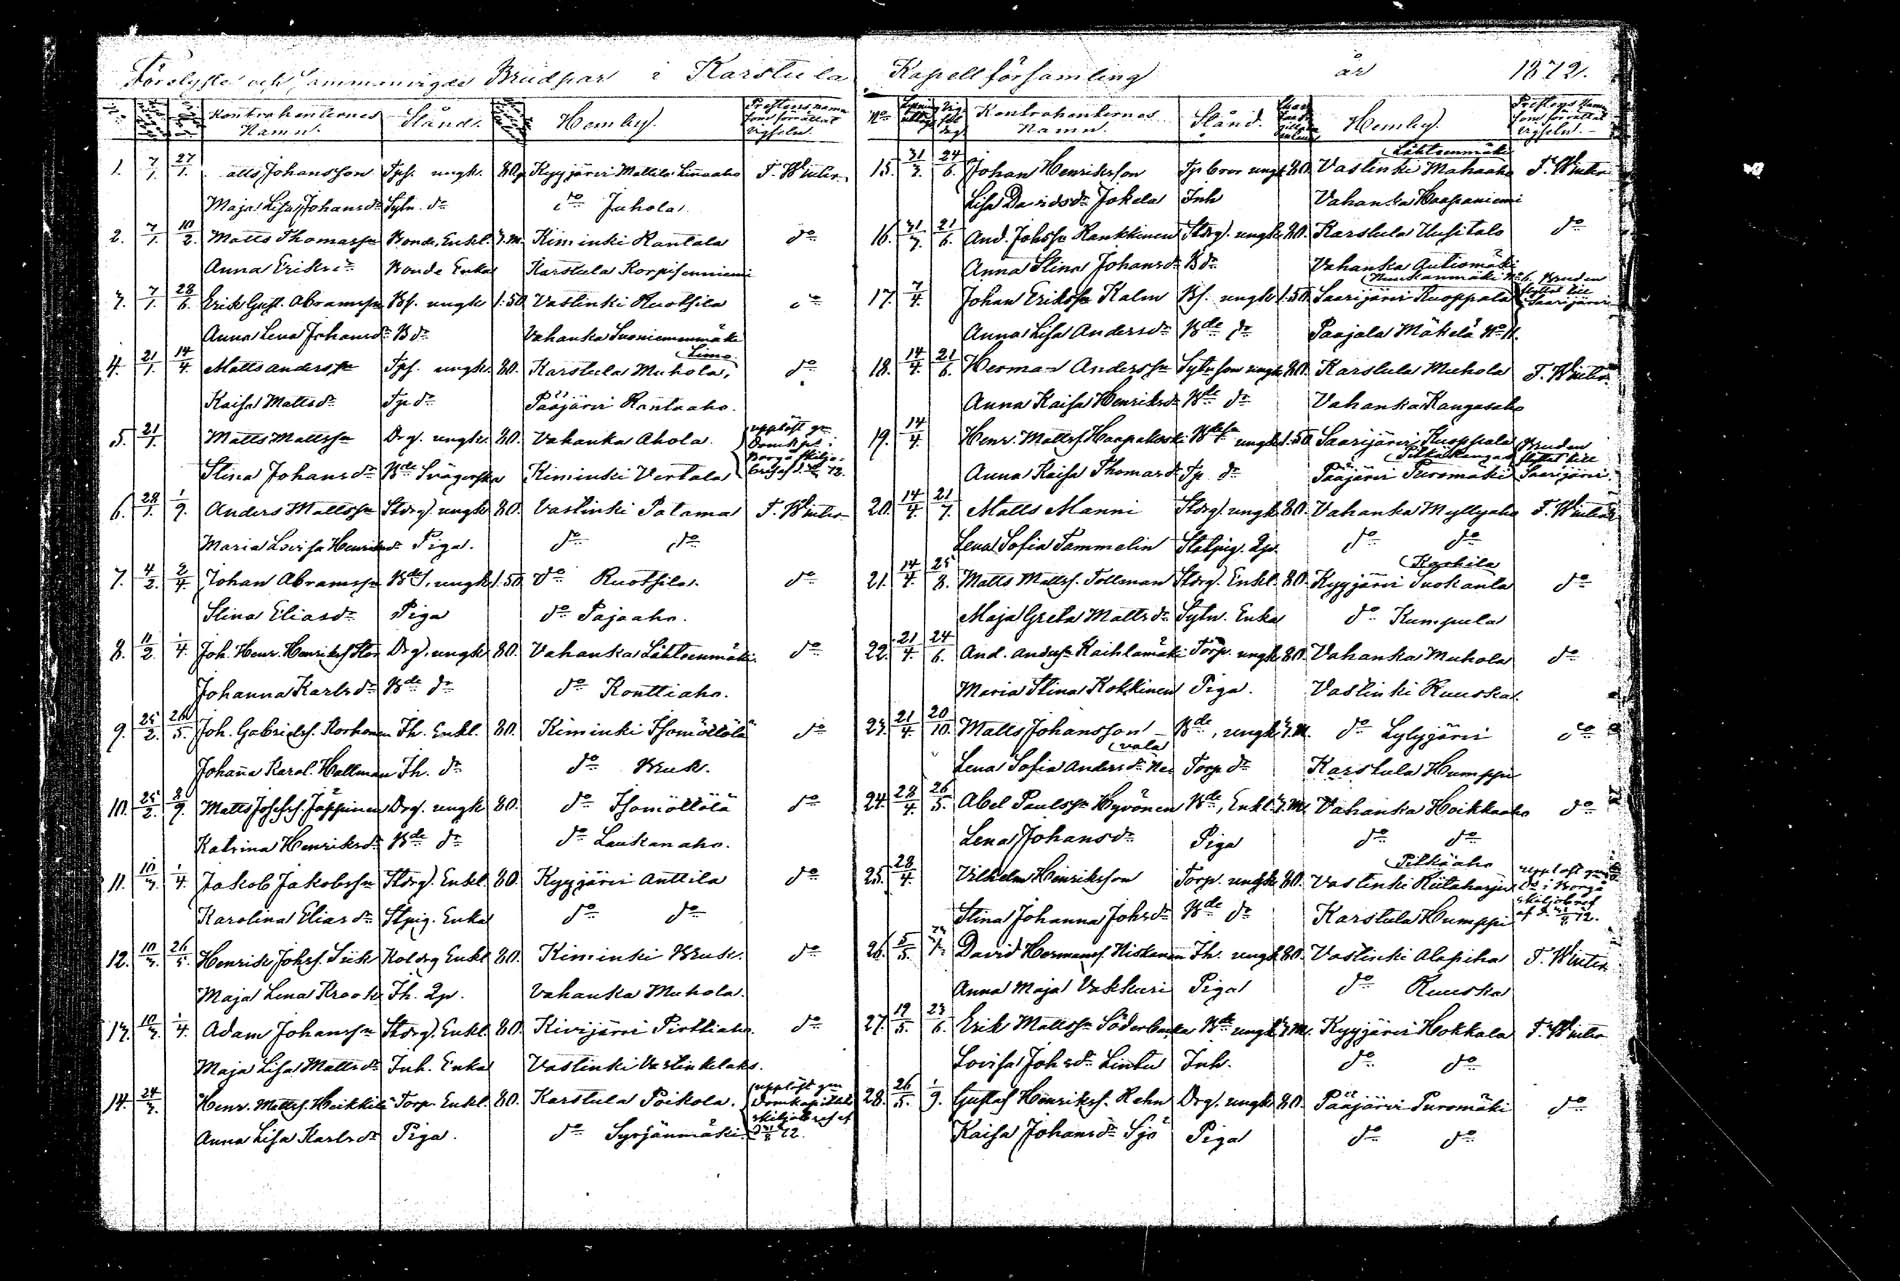 Förelyste och Sammanvigde Brudpar i Karstula Kapellförsamling år 1872.
Kontrahenternes Namn. Stånd. Hemby. Prestens namn som förrättat vigseln.
1. 7/1. 27/1. Johansson Tps. ungk. 80 p Kyyjärvi Mattila Linnaaho F. Winter
Maja Lisa Johansdr Sytn. do do Juhola.
2. 7/1. 10/2. Matts Thomasson Bonde, Enkl. 3.M. Kiminki Rantala do
Anna Eriksdr Bonde Enka Karstula Korpisenniemi
3. 7/1. 28/6. Erik Gust. Abramsson Bs. ungk. 1.50. Vastinki Ruotsila do
Anna Lena Johansdr Bdr Vahanka Suoniemenmäki
4. 21/1. 14/4. Matts Andersson Tps. ungk. 80. Karstula Muhola, do
Kaisa Mattsdr Tp dr Pääjärvi Rantaaho.
5. 21/1. Matts Mattsson Drg. ungk. 80. Vahanka Ahola. upplöst gm Domkpt. i Borgå skiljo-
Stina Johansdr Bde Svägerska Kiminki Vertala
6. 28/1. 1/9. Anders Mattsson Stdrg. ungk 80. Vastinki Patama F. Winter
Maria Lovisa Henriksdr Piga. do do
7. 4/2. 2/4. Johan Abramsson Bdes. ungk 1.50. do Ruotsila. do
Stina Eliasdr Piga do Pajaaho.
8. 11/2. 1/4. Joh. Henr. Henrikss. Drg. ungk 80. Vahanka Lähteenmäki. do
Johanna Karlsdr Bde dr do Konttiaho.
9. 25/2. 26/5. Joh. Gabrielss. Korhonen Ih. Enkl. 80. Kiminki Isomöttölä do
Johanna Karol. Hallman Ih. dr do Bruk.
10. 25/2. 8/9. Matts Josefss. Jäppinen Drg. ungk 80. do Isomöttölä do
Katrina Henriksdr Bde dr do Laukanaho.
11. 10/3. 1/4. Jakob Jakobsson Stdrg. Enkl. 80. Kyyjärvi Anttila do
Karolina Eliasdr Stpig. Enka do do
12. 10/3. 26/5. Henrik Johss. Koldrg Enkl. 80. Kiminki Bruk. do
Maja Lena Krook Ih. Qp. Vahanka Muhola.
13. 10/3. 1/4. Adam Johansson Stdrg. Enkl. 80. Kivijärvi Pirttiaho. do
Maja Lisa Mattsdr Inh. Enka Vastinki Vastinkilaks.
14. 24/3. Henr. Mattss. Heikkilä Torp. Enkl. 80. Karstula Poikola. upplöst gm Domkapitlets skiljobref af
Anna Lisa Karlsdr Piga. do Syrjänmäki.
No Kontrahenternes Namn. Stånd. Hemby. Prestens Namn som förrättat vigseln.
Lähteenmäki
15. 31/3. 24/6. Johan Henriksson ungk 80. Vastinki Mahaaho F. Winter
Lisa Davidsdr Jokela Inh Vahanka Haapaniemi
16. 31/3. 21/6. And. Johsson Rankkinen Stdrg. ungk 80. Karstula Uusitalo do
Anna Stina Johansdr Bdr Vahanka Autiomäki
17. 7/4. Johan Eriksson Kalm Bs. ungk 1.50. Saarijärvi Kuoppala Bruden flyttat till Saarijärvi
Anna Lisa Andersdr Bde dr Paajala Mäkelä No 11.
18. 14/4. 21/6. Herman Andersson Sytn son ungk 80. Karstula Muhola F. Winter
Anna Kaisa Henriksdr Bde dr Vahanka Kangasaho
19. 14/4. Henr. Mattss. Haapakoski ungk 1.50. Saarijärvi Kuoppala Bruden flyttat till Saarijärvi.
Anna Kaisa Thomasdr Tp. dr Pääjärvi Puromäki
20. 14/4. 21/7. Matts Manni Stdrg. ungk. 80. Vahanka Myllyaho F. Winter
Lena Sofia Tammelin Stpig. Qp. do do
21. 14/4. 25/8. Matts Mattss. Tollman Stdrg. Enkl. 80. Kyyjärvi do
Maja Greta Mattsdr Sytn. Enka do Kumpula
22. 21/4. 24/6. And. Andersson Kaihlamäki Torp. ungk 80. Vahanka Muhola do
Maria Stina Kokkinen Piga. Vastinki Ruuska.
23. 21/4. 20/10. Matts Johansson Bde, ungk 3.M. do Lylyjärvi do
Lena Sofia Andersdr Torp dr Karstula Humppi
24. 28/4. 26/5. Abel Paulsson Hyvönen Bde, Enkl. 3.M. Vahanka Hoikkaaho do
Lena Johansdr Piga do do
Pitkäaho
25. 28/4. Vilhelm Henriksson Torp. ungk 80. Vastinki Riitaharju upplöst gm i Borgå skiljobref
Stina Johanna Johsdr Bde dr Karstula Humppi
26. 5/5. David Hermanss. Hiskanen Ih. ungk 80. Vastinki Alapiha F. Winter
Anna Maja Vakkuri Piga do Ruuska
27. 19/5. 23/6. Erik Mattsson Söderbacka Bde ungk 3.M. Kyyjärvi Hokkala F. Winter
Lovisa Johsdr Lintu Inh. do do
28. 26/5. 1/9. Gustaf Henrikss. Rehn Drg. ungk 80. Pääjärvi Puromäki do
Kaisa Johansdr Sjö Piga do do